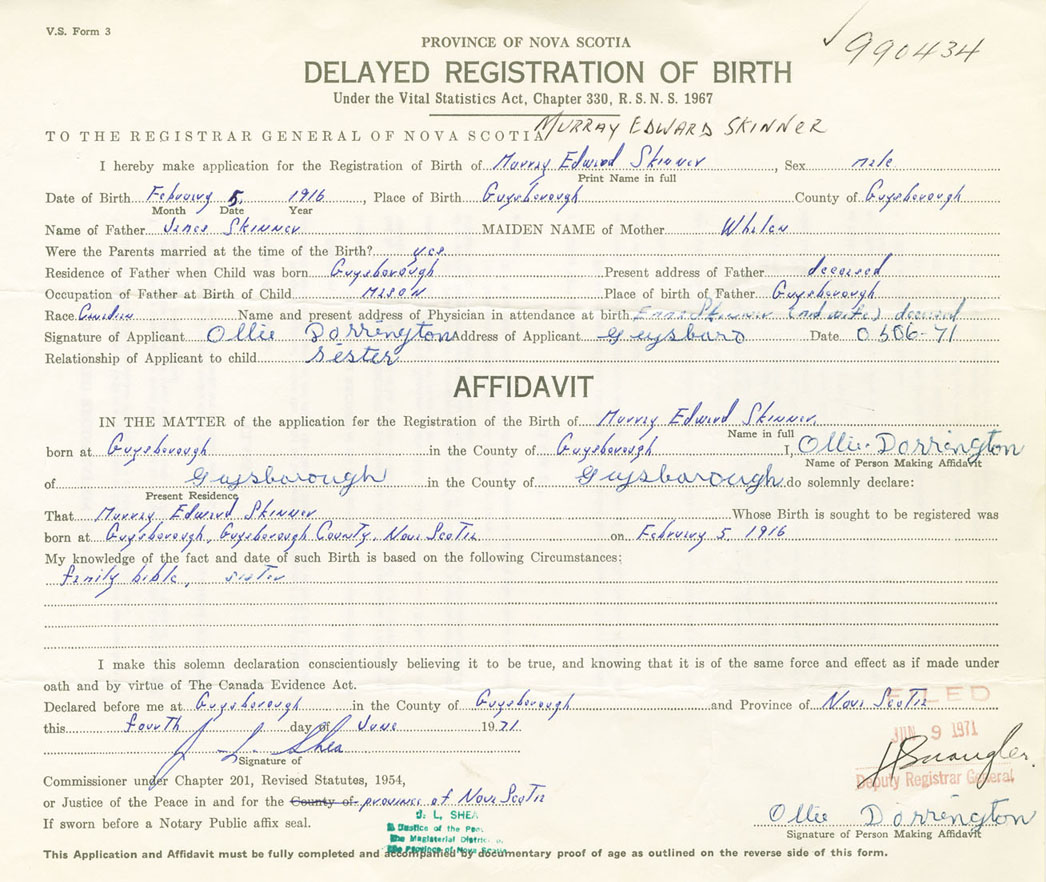 V.S. Form 3
990434
PROVINCE OF NOVA SCOTIA
DELAYED REGISTRATION OF BIRTH
Under the Vital Statistics Act, Chapter 330, R. S. N. S. 1967
TO THE REGISTRAR GENERAL OF NOVA SCOTIA MURRAY EDWARD SKINNER
I hereby make application for the Registration of Birth of Murray Edward Skinner, Sex male
Print Name in full
Date of Birth February 5, 1916, Place of Birth Guysborough County of Guysborough
Month Date Year
Name of Father James Skinner MAIDEN NAME of Mother Whelan
Were the Parents married at the time of the Birth? yes
Residence of Father when Child was born Guysborough Present address of Father deceased
Occupation of Father at Birth of Child mason Place of birth of Father Guysborough
Race Name and present address of Physician in attendance at birth Skinner (midwife) deceased
Signature of Applicant Ollie Dorrington Address of Applicant Guysboro Date 0506-71
Relationship of Applicant to child sester
AFFIDAVIT
IN THE MATTER of the application for the Registration of the Birth of Murray Edward Skinner
Name in full
born at Guysborough in the County of Guysborough I, Ollie Dorrington
Name of Person Making Affidavit
of Guysborough in the County of Guysborough do solemnly declare:
Present Residence
That Murray Edward Skinner Whose Birth is sought to be registered was
born at Guysborough, Guysborough County, Nova Scotia on February 5, 1916
My knowledge of the fact and date of such Birth is based on the following Circumstances:
family bible, sister
I make this solemn declaration conscientiously believing it to be true, and knowing that it is of the same force and effect as if made under
oath and by virtue of The Canada Evidence Act.
Declared before me at Guysborough in the County of Guysborough and Province of Nova Scotia
FILED
this fourth day of June 1971
JUN 9 1971
J. L. Shea
Signature of
Deputy Registrar General
Commissioner under Chapter 201, Revised Statutes, 1954,
or Justice of the Peace in and for the County of province of Nova Scotia
J. L. SHEA
If sworn before a Notary Public affix seal.
Ollie Dorrington
Signature of Person Making Affidavit
This Application and Affidavit must be fully completed and accompanied by documentary proof of age as outlined on the reverse side of this form.